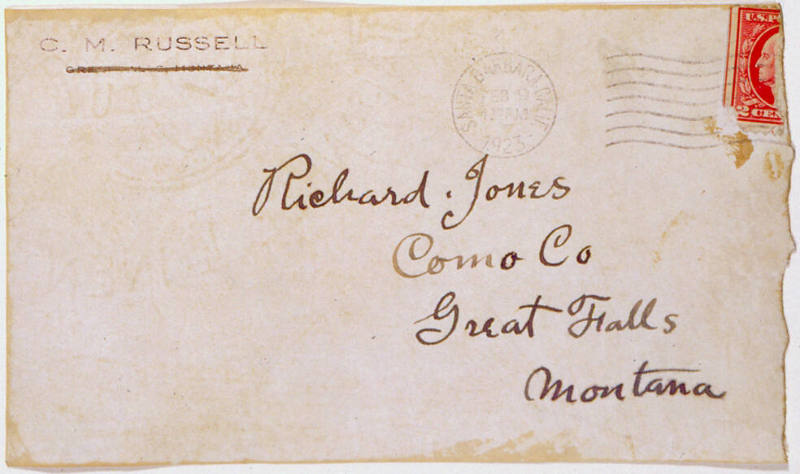 C. M. RUSSELL
GREAT FALLS, MONTANA
SANTA BARBARA, CALIF.
FEB 9
AM
1923
U.S. P
2 CEN
Richard. Jones
Como Co
Great Falls
Montana